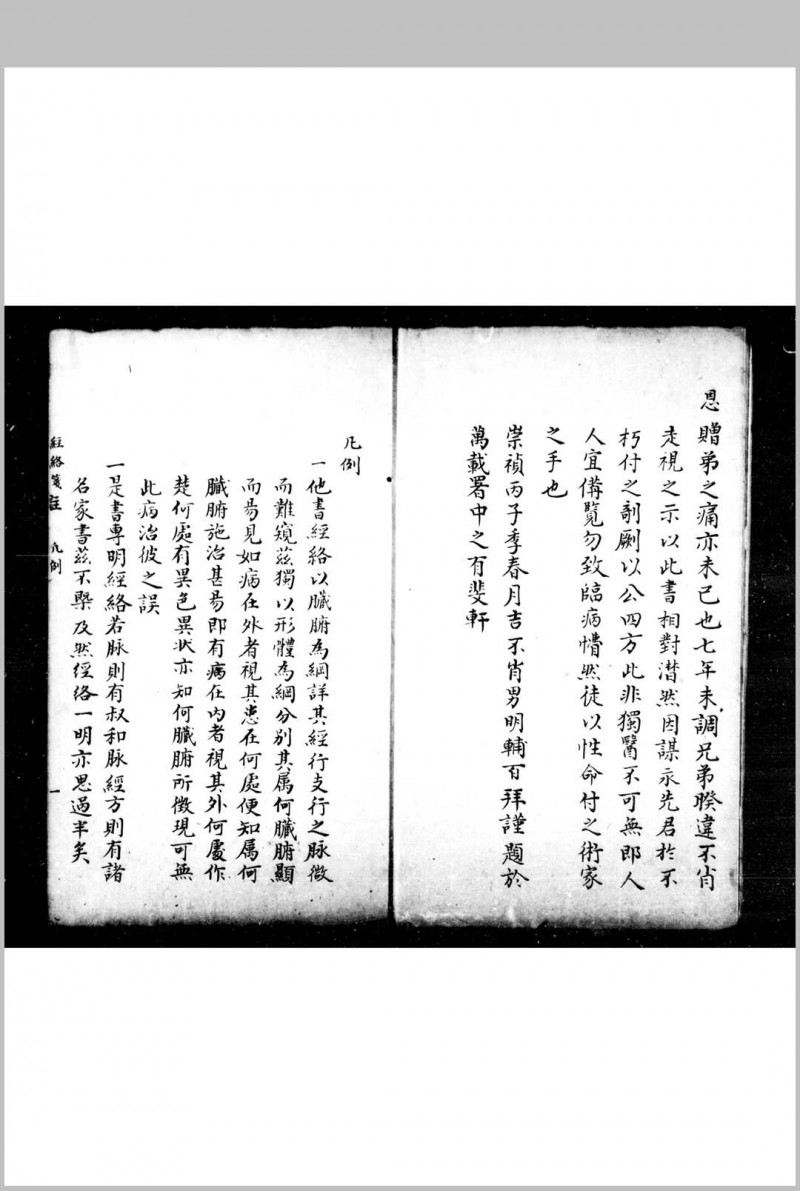 恩贈弟之痛亦未已也七年未調兄弟暌違不肖
走視之示以此書相對潸然因謀永先君於不
朽付之剞劂以公四方此非獨醫不可無即人
人宜備覽勿致臨病懵然徒以性命付之術家
之手也
崇禎丙子季春月吉不肖男明輔百拜謹題於
萬載署中之有斐軒
凡例
一他書經絡以臟腑為綱詳其經行支行之脉微
而難窺茲獨以形體為綱分別其属何臟腑顯
而昜見如病在外者視其患在何處便知属何
臟腑施治甚昜即有病在内者視其外何處作
楚何處有異色異状亦知何臟腑所徵現可無
此病治彼之誤
一是書專明經絡若脉則有叔和脉經方則有諸
名家書茲不槩及然經络一明亦思過半矣
經絡箋註 凡例 一